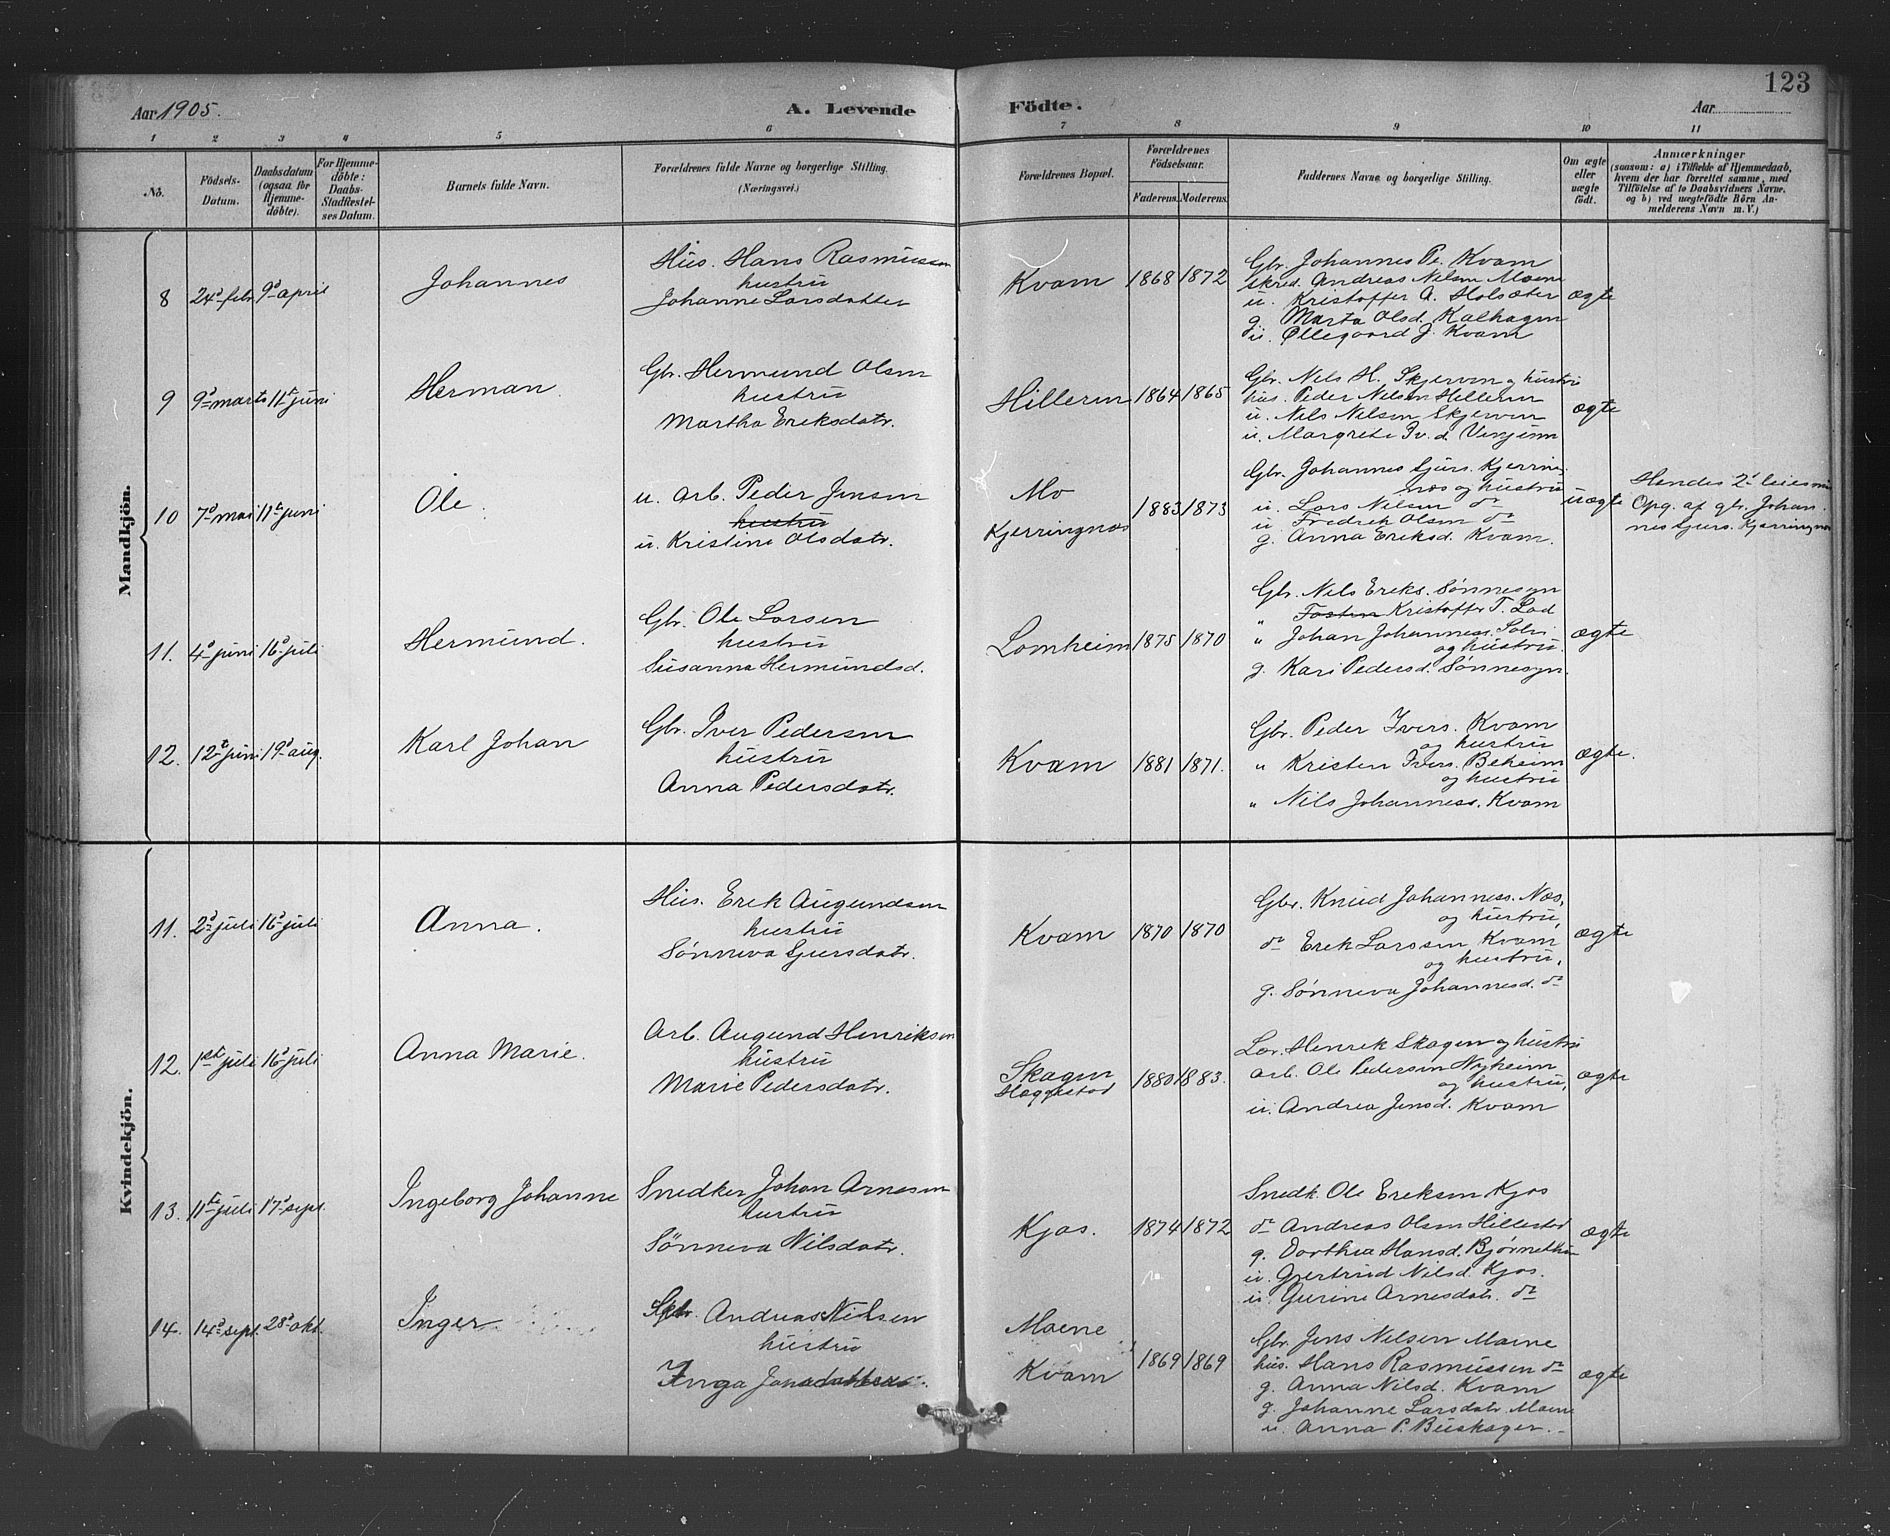 123
Aar 1905.
A. Levende Födte.
Aar
1 2 3 4 5 6 7 8 9 10 11
No.
Födsels-Datum.
Daabsdatum (ogsaa for Hjemme-döbte).
For Hjemme-döbte: Daabs-Stadfæstel-ses Datum.
Barnets fulde Navn.
Forældrenes fulde Navne og borgerlige Stilling. (Næringsvei.)
Forældrenes Bopæl.
Forældrenes Födselsaar.
Faderens. Moderens.
Faddernes Navne og borgerlige Stilling.
Om ægte eller uægte födt.
Anmærkninger
(saasom: a) i Tilfælde af Hjemmedaab, hvem der har forrettet samme, med Tilföielse af to Daabsvidners Navne. og b) ved uægtefödte Börn An-melderens Navn m. V.)
Mandkjön.
8 24d febr 9d april Johannes
Hus. Hans Rasmussen
hustru
Johanne Larsdatter
Kvam 1868 1872
Gbr. Johannes Pe. Kvam
Skred. Andreas Nilsen Moene
u. Kristoffer A. Holsæter
g. Marta Olsd. Kalhagen
u. Øllegaard J. Kvam
ægte
9 9d marts 11t juni Herman
Gbr. Hermund Olsen
hustru
Martha Eriksdatr.
Hilleren 1864 1865
Gbr. Nils H. Skjerven og hustru
hus. Peder Nilsen Hilleren
u. Nils Nilsen Skjerven
u. Margrete Iv. d. Venjum
ægte
10 7d mai 11t juni Ole
u. arb. Peder Jensen
hustru
u. Kristine Olsdatr.
Mo
Kjerringnæs
1883 1873
Gbr. Johannes Sjurs. Kjerring-
næs og hustru
u. Lars Nilsen do
u Fredrik Olsen do
g. Anna Eriksd. Kvam.
uægte
Hendes 2d leiesmaal
Opg. af gbr. Johan-
nes Sjurs. Kjerringnæs
11. 4d juni 16d juli Hermund.
Gbr. Ole Larsen
hustru
Susanna Hermundsd.
Lomheim 1875 1870
Gbr. Nils Eriks. Sønnesyn
" Kristoffer T. Lad
" Johan Johanness.
og hustru.
g. Kari Pedersd. Sønnesyn.
ægte
12. 12t juni 19d aug. Karl Johan
Gbr. Iver Pedersen
hustru
Anna Pedersdatr.
Kvam 1881 1871.
Gbr. Peder Ivers. Kvam
og hustru
" Kristen Ivers. Beheim
og hustru
" Nils Johanness. Kvam
ægte.
Kvindekjön.
11. 2d juli 16d juli Anna.
Hus. Erik Augundsen
hustru
Sønneva Sjursdatr.
Kvam 1870 1870
Gbr. Knud Johanness. Næs,
og hustru,
do Erik Larssen Kvam
og hustru,
g. Sønneva Johannesd. do
ægte
12. 1st juli 16d juli Anna Marie.
Arb. Augund Henriksen
hustru
Marie Pedersdatr.
Skagen
Hæggestad
1880 1883.
Lær. Henrik Skagen og hustru
arb. Ole Pedersen Nyheim
og hustru,
u. Andrea Jensd. Kvam
ægte
13. 11te juli 17d sept. Ingeborg Johanne
Snedker Johan Arnesen
hustru
Sønneva Nilsdatr.
Kjos. 1874 1872
Snedk. Ole Eriksen Kjos
do Andreas Olsen Hillestad
g. Dorthea Hansd. Bjørnethun
u. Gjertrud Nilsd. Kjos.
u. Gurine Arnesdatr. do
ægte
14. 14d sept. 28d okt. Inger
Gbr. Andreas Nilsen
hustru
Inga Jonsdatter.
Moene
Kvam
1869 1869
Gbr. Jens Nilsen Moene
hus. Hans Rasmussen do
g. Anna Nilsd. Kvam
g. Johanne Larsdatr Moene
u. Anna P. Buskager.
ægte